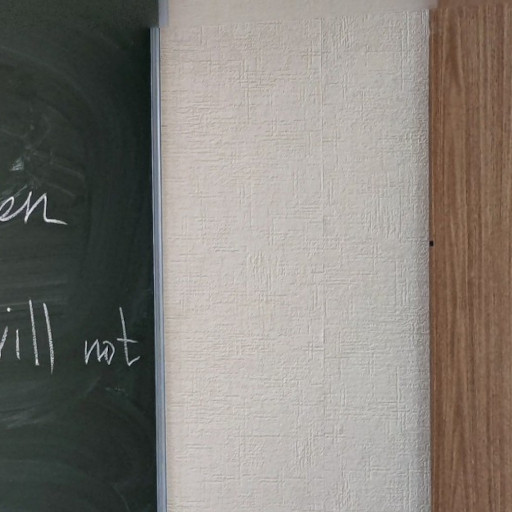 en
will not